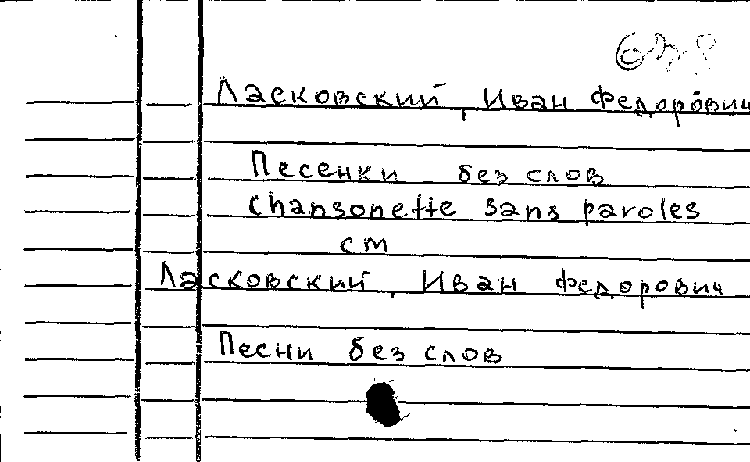 Ласковский, Иван Федорович
Песенки без слов
Chansonette sans paroles
см
Ласковский, Иван Федорович
Песни без слов